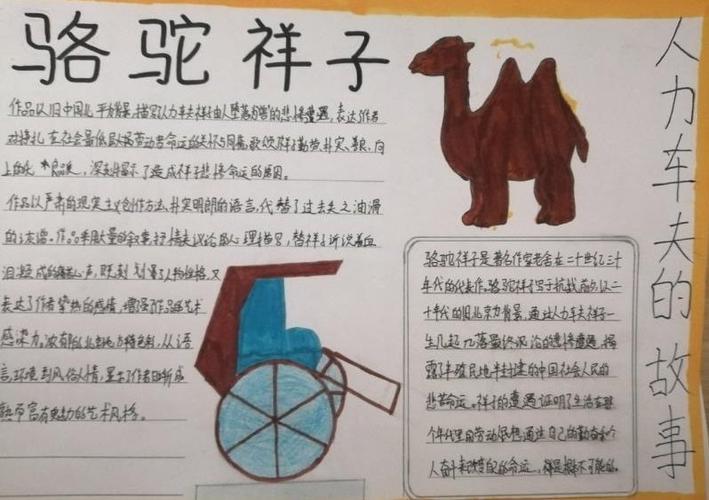 骆驼祥子
作品以旧中国北平为背景,描写人力车夫祥子由人堕落为兽的悲惨遭遇,表达作者
对挣扎在社会最低层劳动者命运的关怀与同情,歌颂祥子勤劳、朴实、善良、向
上的 品质,深刻揭示了造成祥子悲惨命运的原因。
作品以严肃的现实主义创作方法,朴实明朗的语言,代替了过去失之油滑
的 作品采用大量的叙事抒情夹议论的心理描写,替祥子诉说着血
泪凝成的 心声,既刻划了人物性格,又
表达了作者挚热的感情,增强作品艺术
感染力。浓郁的北京地方特色,从语
言、环境到风俗人情,显示了作者日渐成
熟而富有魅力的艺术风格。
人力车夫的故事
骆驼祥子是著名作家老舍在二十世纪三十
年代的代表作。骆驼祥子写于抗战前夕,以二
十年代的旧北京为背景,通过人力车夫祥子一
生几起几落最终沦落的悲惨遭遇,揭
露了半殖民地半封建的中国社会人民的
悲苦命运。祥子的遭遇证明了生活在那
个年代里的劳动 想通过自己的勤奋和个
人奋斗来改变自己的命运,